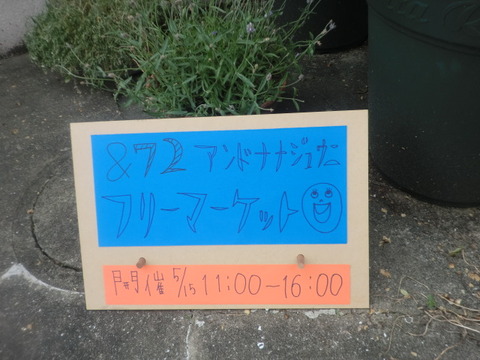 &72 アンドナナジュウニ
フリーマーケット
開催 5/15 11:00~16:00